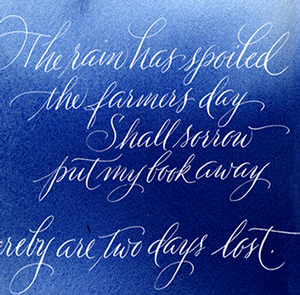 The rain has spoiled
the farmers day
Shall sorrow
put my book away
ereby are two days lost.